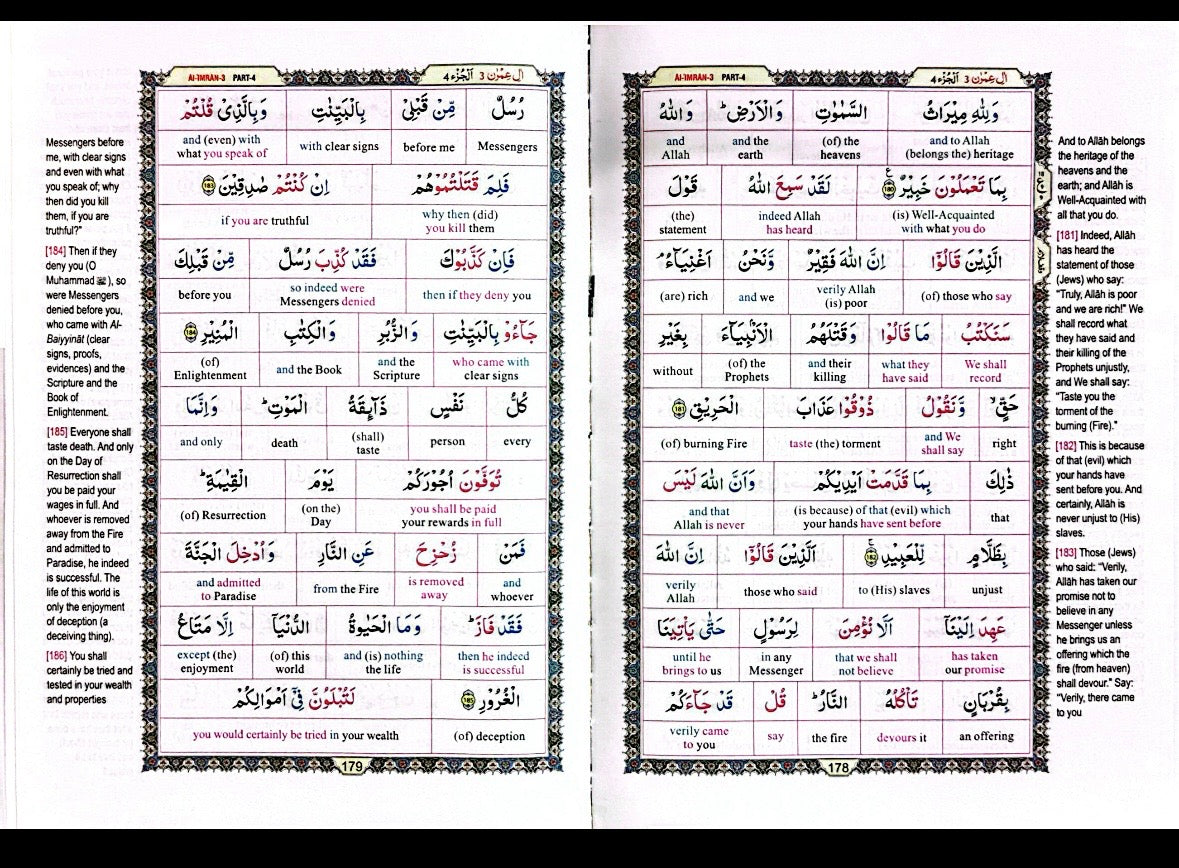 Al-'IMRAN-3 PART-4 اٰلِ عِمْرٰن 3 اَلْجُزْءُ 4
وَلِلّٰهِ مِيْرَاثُ السَّمٰوٰتِ وَالْاَرْضِ ؕ وَاللّٰهُ
and to Allah (belongs the) heritage (of) the heavens and the earth and Allah
بِمَا تَعْمَلُوْنَ خَبِيْرٌ ۧ ﴿180﴾ لَقَدْ سَمِعَ اللّٰهُ قَوْلَ
(is) Well-Acquainted with what you do indeed Allah has heard (the) statement
الَّذِيْنَ قَالُوْٓا اِنَّ اللّٰهَ فَقِيْرٌ وَّنَحْنُ اَغْنِيَآءُ ۘ
(of) those who say verily Allah (is) poor and we (are) rich
سَنَكْتُبُ مَا قَالُوْا وَقَتْلَهُمُ الْاَنْۢبِيَآءَ بِغَيْرِ
We shall record what they have said and their killing (of) the Prophets without
حَقٍّ ۙ وَّنَقُوْلُ ذُوْقُوْا عَذَابَ الْحَرِيْقِ ﴿181﴾
right and We shall say taste (the) torment (of) burning Fire
ذٰلِكَ بِمَا قَدَّمَتْ اَيْدِيْكُمْ وَاَنَّ اللّٰهَ لَيْسَ
that (is because) of that (evil) which your hands have sent before and that Allah is never
بِظَلَّامٍ لِّلْعَبِيْدِ ۚ ﴿182﴾ اَلَّذِيْنَ قَالُوْٓا اِنَّ اللّٰهَ
unjust to (His) slaves those who said verily Allah
عَهِدَ اِلَيْنَآ اَلَّا نُؤْمِنَ لِرَسُوْلٍ حَتّٰى يَاْتِيَنَا
has taken our promise that we shall not believe in any Messenger until he brings to us
بِقُرْبَانٍ تَاْكُلُهُ النَّارُ ؕ قُلْ قَدْ جَآءَكُمْ
an offering devours it the fire say verily came to you
178
And to Allāh belongs
the heritage of the
heavens and the
earth; and Allāh is
Well-Acquainted with
all that you do.
[181] Indeed, Allāh
has heard the
statement of those
(Jews) who say:
"Truly, Allāh is poor
and we are rich!" We
shall record what
they have said and
their killing of the
Prophets unjustly,
and We shall say:
"Taste you the
torment of the
burning (Fire)."
[182] This is because
of that (evil) which
your hands have
sent before you. And
certainly, Allāh is
never unjust to (His)
slaves.
[183] Those (Jews)
who said: "Verily,
Allāh has taken our
promise not to
believe in any
Messenger unless
he brings us an
offering which the
fire (from heaven)
shall devour." Say:
"Verily, there came
to you
Al-'IMRAN-3 PART-4 اٰلِ عِمْرٰن 3 اَلْجُزْءُ 4
رُسُلٌ مِّنْ قَبْلِىْ بِالْبَيِّنٰتِ وَبِالَّذِىْ قُلْتُمْ
Messengers before me with clear signs and (even) with what you speak of
فَلِمَ قَتَلْتُمُوْهُمْ اِنْ كُنْتُمْ صٰدِقِيْنَ ﴿183﴾
why then (did) you kill them if you are truthful
فَاِنْ كَذَّبُوْكَ فَقَدْ كُذِّبَ رُسُلٌ مِّنْ قَبْلِكَ
then if they deny you so indeed were Messengers denied before you
جَآءُوْ بِالْبَيِّنٰتِ وَالزُّبُرِ وَالْكِتٰبِ الْمُنِيْرِ ﴿184﴾
who came with clear signs and the Scripture and the Book (of) Enlightenment
كُلُّ نَفْسٍ ذَآئِقَةُ الْمَوْتِ ؕ وَاِنَّمَا
every person (shall) taste death and only
تُوَفَّوْنَ اُجُوْرَكُمْ يَوْمَ الْقِيٰمَةِ ؕ
you shall be paid your rewards in full (on the) Day (of) Resurrection
فَمَنْ زُحْزِحَ عَنِ النَّارِ وَاُدْخِلَ الْجَنَّةَ
and whoever is removed away from the Fire and admitted to Paradise
فَقَدْ فَازَ ؕ وَمَا الْحَيٰوةُ الدُّنْيَآ اِلَّا مَتَاعُ
then he indeed is successful and (is) nothing the life (of) this world except (the) enjoyment
الْغُرُوْرِ ﴿185﴾ لَتُبْلَوُنَّ فِىْٓ اَمْوَالِكُمْ
(of) deception you would certainly be tried in your wealth
179
Messengers before
me, with clear signs
and even with what
you speak of; why
then did you kill
them, if you are
truthful?"
[184] Then if they
deny you (O
Muhammad ﷺ), so
were Messengers
denied before you,
who came with Al-
Baiyyināt (clear
signs, proofs,
evidences) and the
Scripture and the
Book of
Enlightenment.
[185] Everyone shall
taste death. And only
on the Day of
Resurrection shall
you be paid your
wages in full. And
whoever is removed
away from the Fire
and admitted to
Paradise, he indeed
is successful. The
life of this world is
only the enjoyment
of deception (a
deceiving thing).
[186] You shall
certainly be tried and
tested in your wealth
and properties